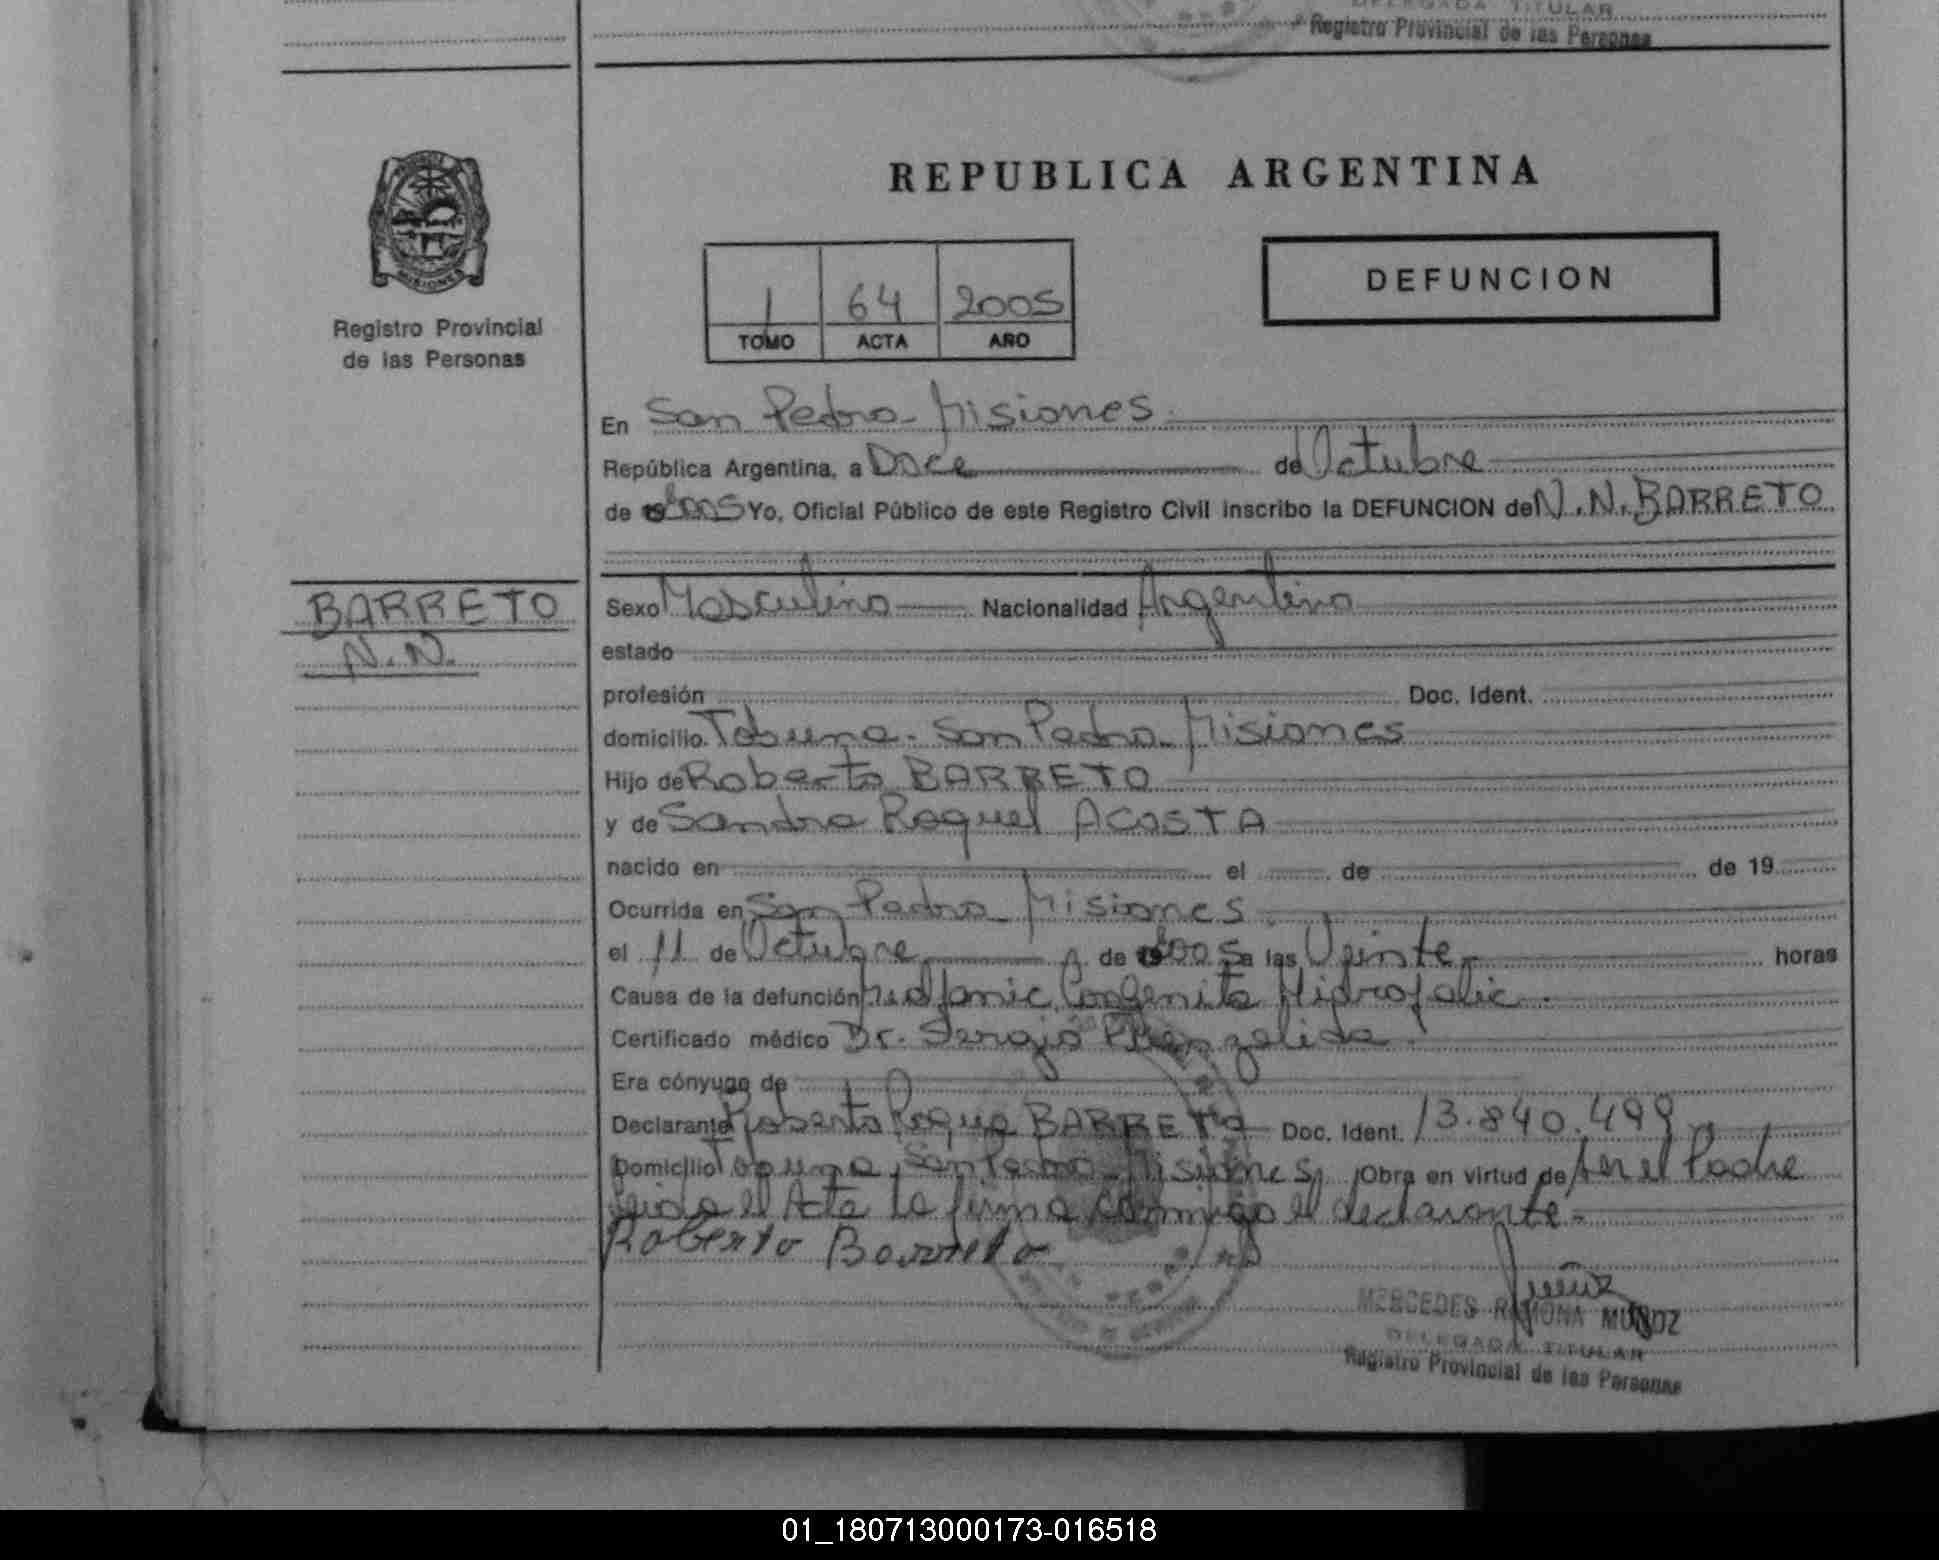 DELEGADA TITULAR
Registro Provincial de las Personas
REPUBLICA ARGENTINA
1 64 2005
TOMO ACTA AÑO
DEFUNCION
MISIONES
Registro Provincial
de las Personas
En San Pedro - Misiones
República Argentina, a Doce de Octubre
de 2005 Yo, Oficial Público de este Registro Civil inscribo la DEFUNCION de N.N. BARRETO
BARRETO
N.N.
Sexo Masculino Nacionalidad Argentino
estado
profesión Doc. Ident.
domicilio Tobuna - San Pedro - Misiones
Hijo de Roberto BARRETO
y de Sandra Raquel ACOSTA
nacido en el de de 19
Ocurrida en San Pedro - Misiones
el 11 de Octubre de 2005 a las Veinte horas
Causa de la defunción Congenita
Certificado médico Dr. Sergio
Era cónyuge de
Declarante Roberto Roque BARRETO Doc. Ident. 13.840.499
Domicilio Tobuna, San Pedro - Misiones Obra en virtud de ser el Padre
Leida el Acta la firma conmigo el declarante -
Roberto Barreto
MERCEDES RAMONA MUÑOZ
DELEGADA TITULAR
Registro Provincial de las Personas
01_180713000173-016518